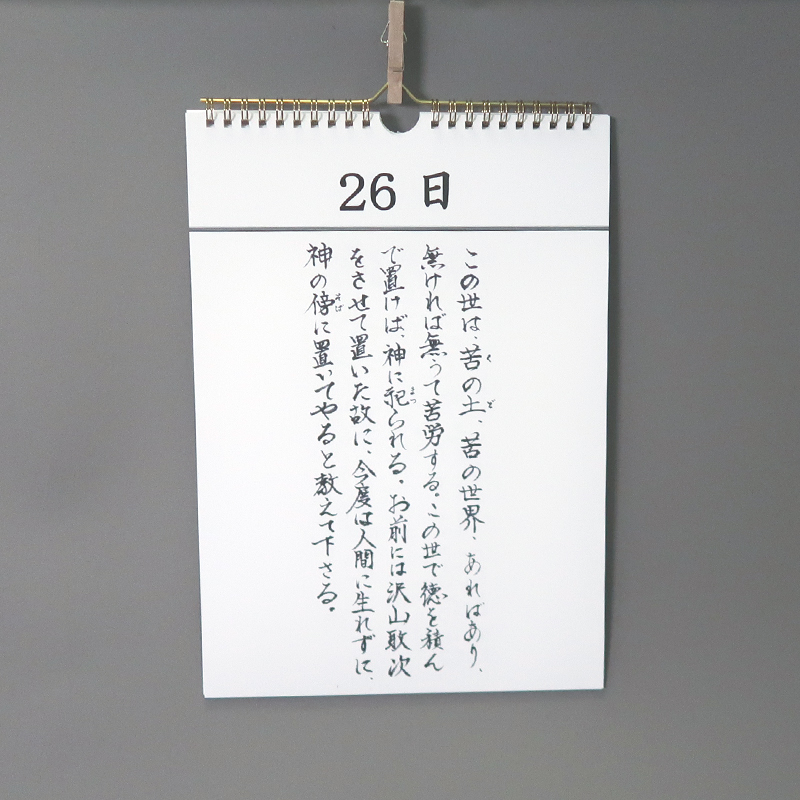 26 日
くど
この世は、苦の土、苦の世界、あればあり、
無ければ無うて苦労する。この世で徳を積ん
まつ
で置けば、神に祀られる。お前には沢山取次
をさせて置いた故に、今度は人間に生れずに、
そば
神の傍に置いてやると教えて下さる。